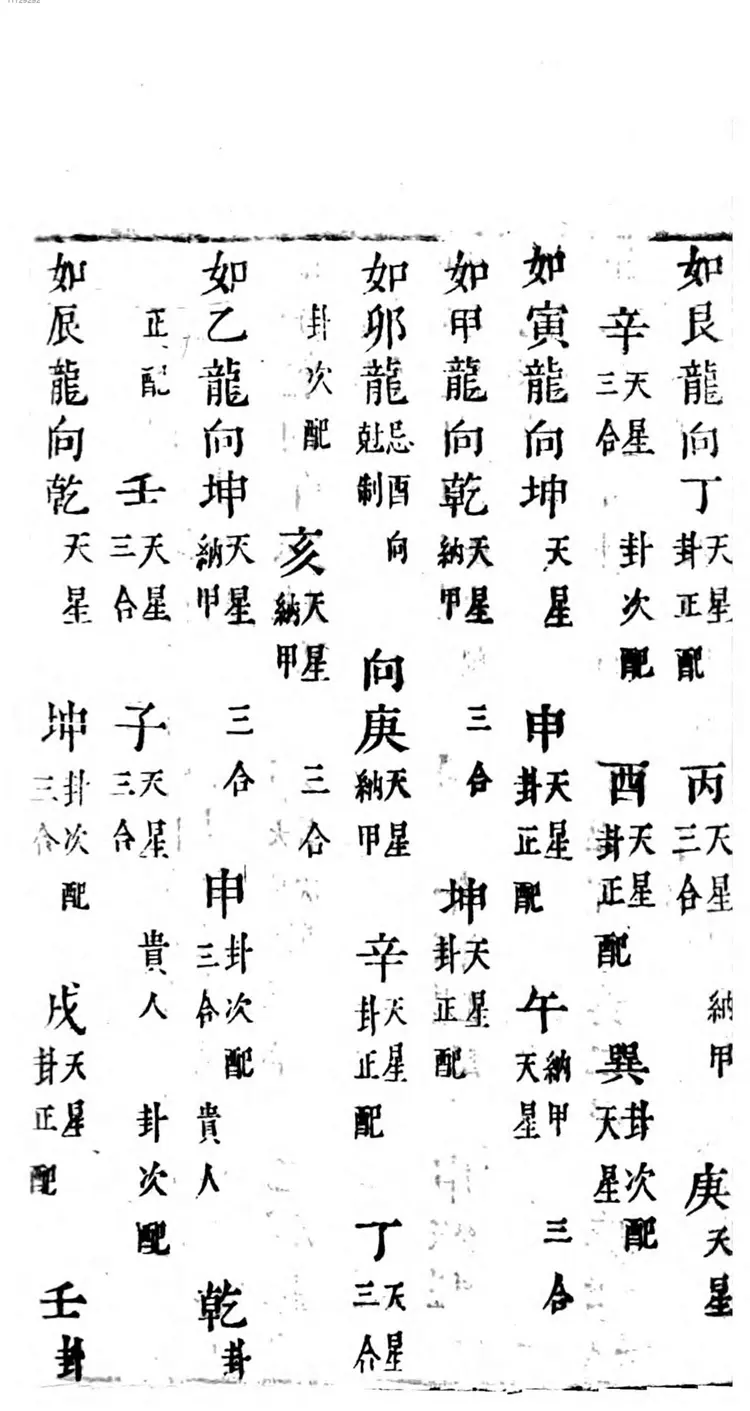 如艮龍向丁天星卦正配丙天星三合納甲庚天星
辛天星三合卦次配酉天星卦正配巽卦次配天星
如寅龍向坤天星申天星卦正配午納甲天星三合
如甲龍向乾天星納甲三合坤天星卦正配
如卯龍忌酉向尅制向庚天星納甲辛天星卦正配丁天星三合
卦次配亥天星納甲三合
如乙龍向坤天星納甲三合申卦次配三合貴人乾卦
正配壬天星三合子天星三合貴人卦次配
如辰龍向乾天星坤卦次配三合戌天星卦正配壬卦